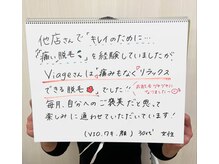 他店さんで"キレイのために…
"痛い脱毛"を経験していましたが
Viageさんは"痛みもなくリラックス
できる脱毛"でした。
毎月、自分へのご褒美だと思って
楽しみに通わせていただいています!
(VIO.ワキ.腕) 30代 女性